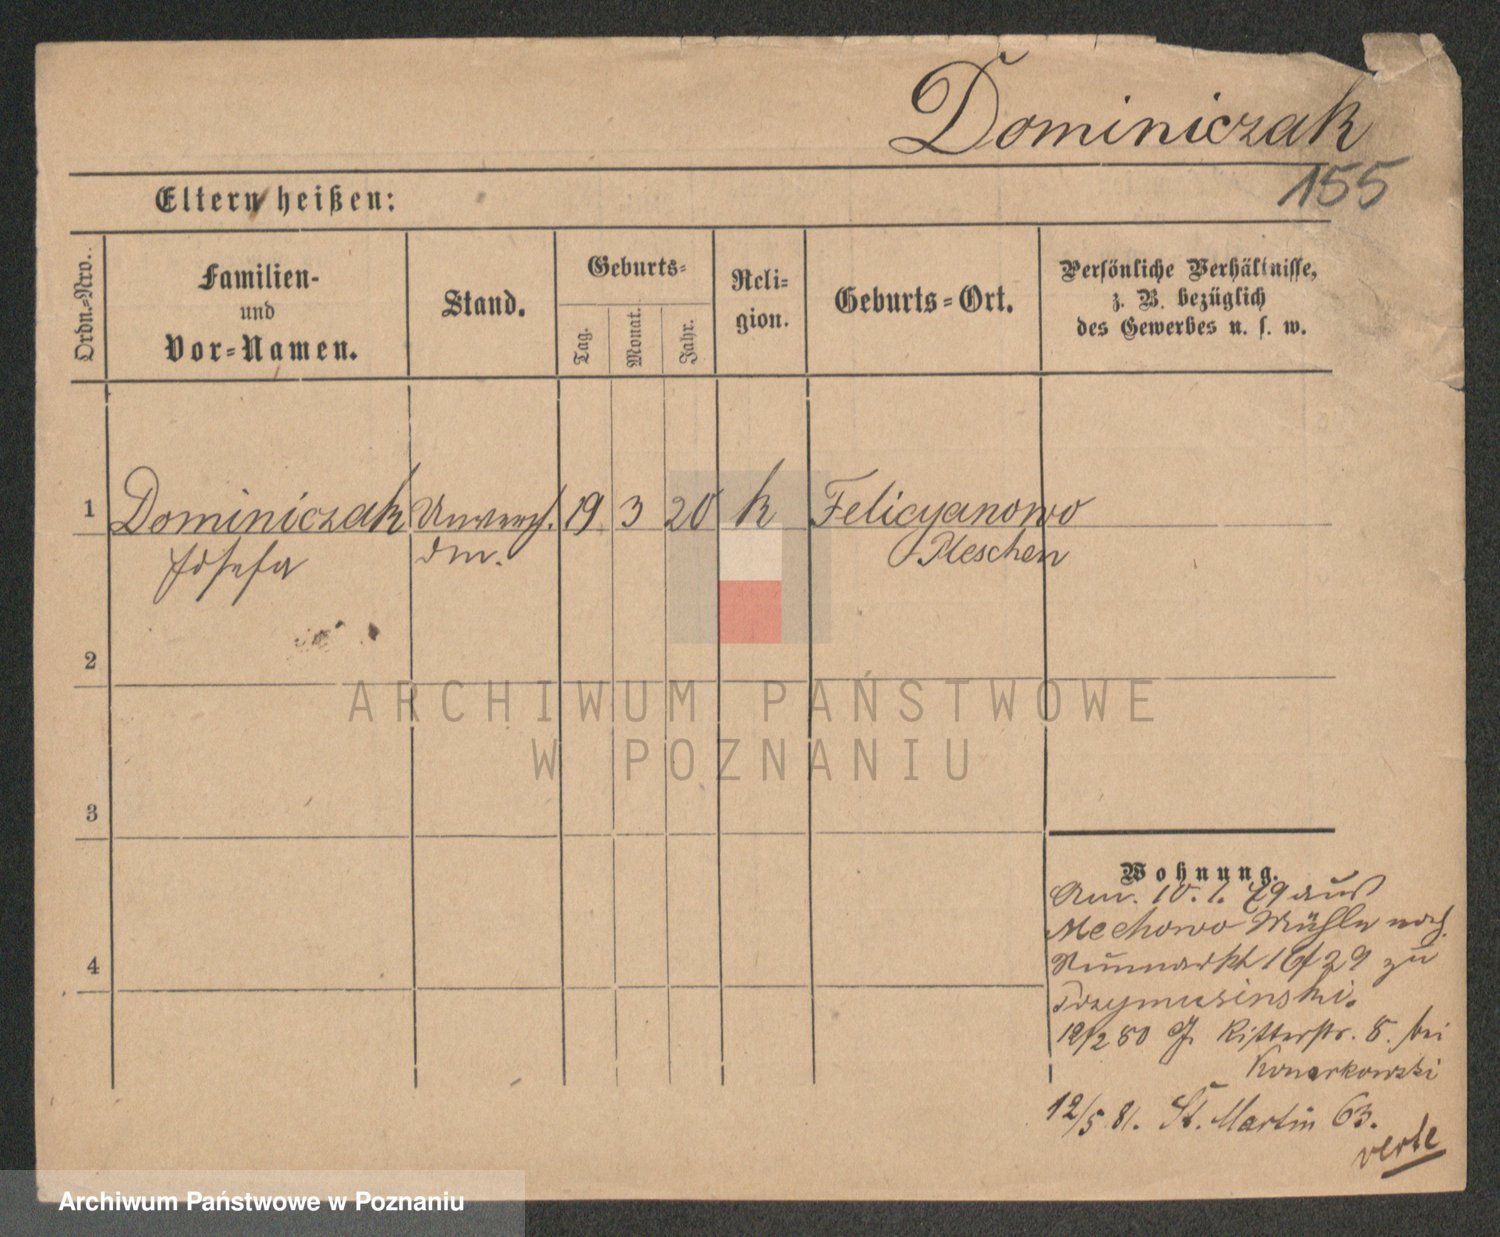 Dominiczak
155
Eltern heißen:
Ordn.-Nro.
Familien-
und
Vor-Namen.
Stand.
Geburts-
Tag.
Monat.
Jahr.
Reli-
gion.
Geburts-Ort.
Persönliche Verhältnisse,
z. B. bezüglich
des Gewerbes u. s. w.
1 Dominiczak Unverh. 19 3 20 k Felicyanowo
Josefa Pleschen
2
3
4
ARCHIWUM PAŃSTWOWE
W POZNANIU
Wohnung.
10. 1. 79 aus
Mechowo Mühle nach
Neumarkt 29 zu
Przymusinski.
12/2 80 Ritterstr. 8. bei
Konarkowski
12/5 81. St. Martin 63.
verte
Archiwum Państwowe w Poznaniu